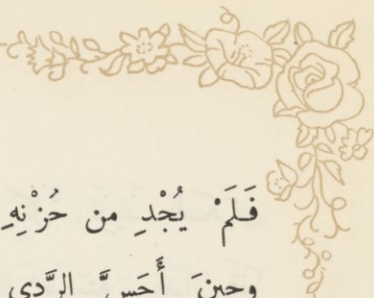 فَلَمْ يُجْدِ من حُزْنِهِ
وحينَ أَحَسَّ الرَّدى